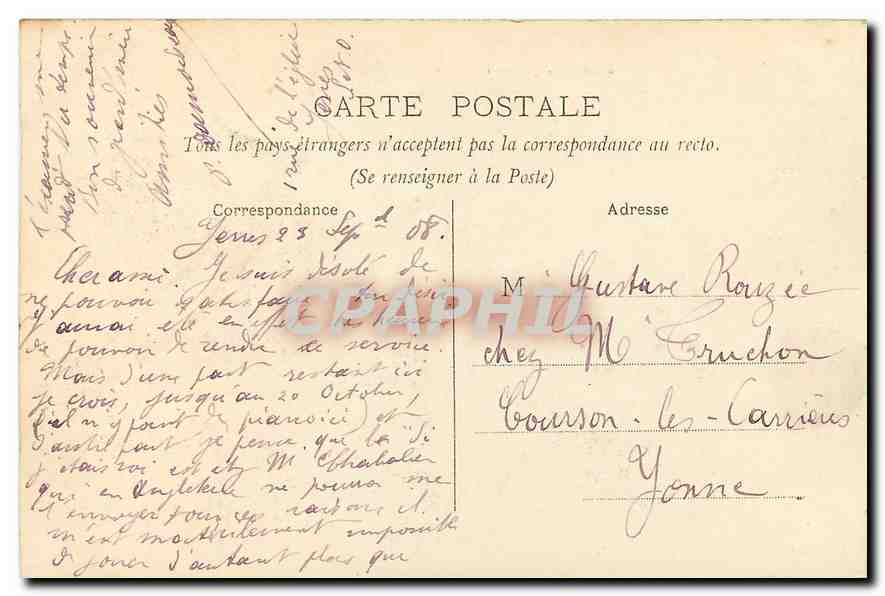 CARTE POSTALE
Tous les pays étrangers n'acceptent pas la correspondance au recto.
(Se renseigner à la Poste)
Correspondance
Yerres 23 Sept 08.
Cher ami. Je suis désolé de
ne pouvoir satisfaire
j'aurai été en effet
de pouvoir te rendre ce service.
Mais d'une part restant ici
je crois, jusqu'au 20 Octobre,
(il n'y point de piano ici) et
d'autre part je pense que le "Si
j'étais roi est chez M. Chabalier
qui en Angleterre ne pourra me
l'envoyer pour ces raisons il
m'est matériellement impossible
de jouer d'autant plus que
souvenir
amitiés
1 rue de l'église
Yerres
S et O.
Adresse
M Gustave Rouzée
chez Mr Truchon
Courson-les-Carrières
Yonne
CPAPHIL